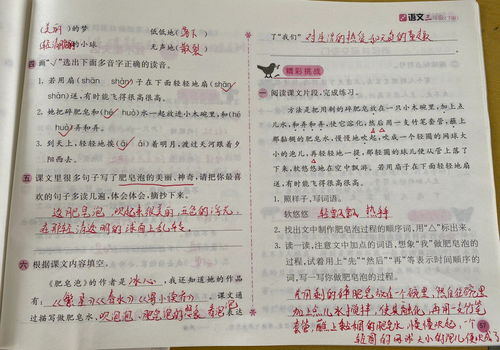 (美丽)的梦 低低地(落下)
(轻清脆丽)的小球 无声地(散裂)
四 画"√"选出下面多音字正确的读音。
1. 若用扇(shān shàn)子在下面轻轻地扇(shān
shàn)送,有时能飞得很高很高。
2. 她把碎肥皂和(hé huò)水一起放进小木碗里,和(hé
huò)弄和弄。
3. 到天上,轻轻地挨(āi ái)着明月,渡过天河跟着夕
阳西去。
五 课文里很多句子写了肥皂泡的美丽、神奇,请把你最喜
欢的句子多读几遍,体会体会,摘抄下来。
这肥皂泡,吹起来很美丽,五色的浮光,
在那轻清透明的球面上乱转。
六 根据课文内容填空。
《肥皂泡》的作者是 冰心 ,我还知道她的作品
有: 《繁星》《春水》《寄小读者》 课文通
过描写做肥皂水, 吹泡泡, 表达
语文 三
了"我们" 对生活的热爱和
精彩挑战
一 阅读课文片段,完成练习。
方法是把用剩的碎肥皂放在一只小木碗里,加上点
儿水,和弄和弄,使它溶化,然后用一支竹笔套管,蘸上
那黏稠的肥皂水,慢慢地吹起,吹成一个轻圆的网球大
小的泡儿,再轻轻地一提,那轻圆的球儿便从管上落了
下来,软悠悠地在空中飘游。若用扇子在下面轻轻地扇
送,有时能飞得很高很高。
1. 照样子,写词语。
软悠悠 轻飘飘
2. 找出文中制作肥皂泡过程的顺序词,用"△"标出来。
3. 读一读,注意文中加点的词语,想象"我"做肥皂泡的
过程,试着用上"先""然后""再"等表示时间顺序的
词,写一写你做肥皂泡的过程。
先用剩的碎肥皂放在一个碗里,然后往碗里
加上点儿水,搅拌,使其融化,再用一支竹笔
套管,蘸上黏稠的肥皂水,慢慢吹起,一个
轻圆的网球大小的泡儿便吹成了
51